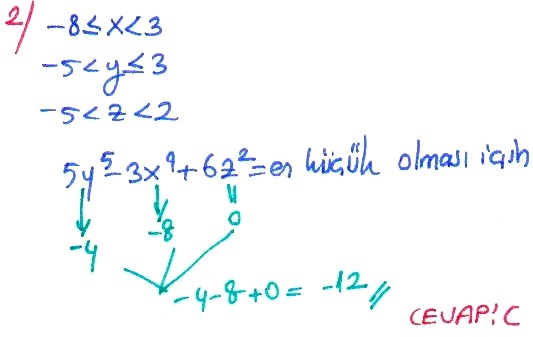 2/ -8≤x<3
-5<y≤3
-5<z<2
5y⁵-3x⁴+6z²=en küçük olması için
-4 -8 0
-4-8+0= -12//
CEVAP:C